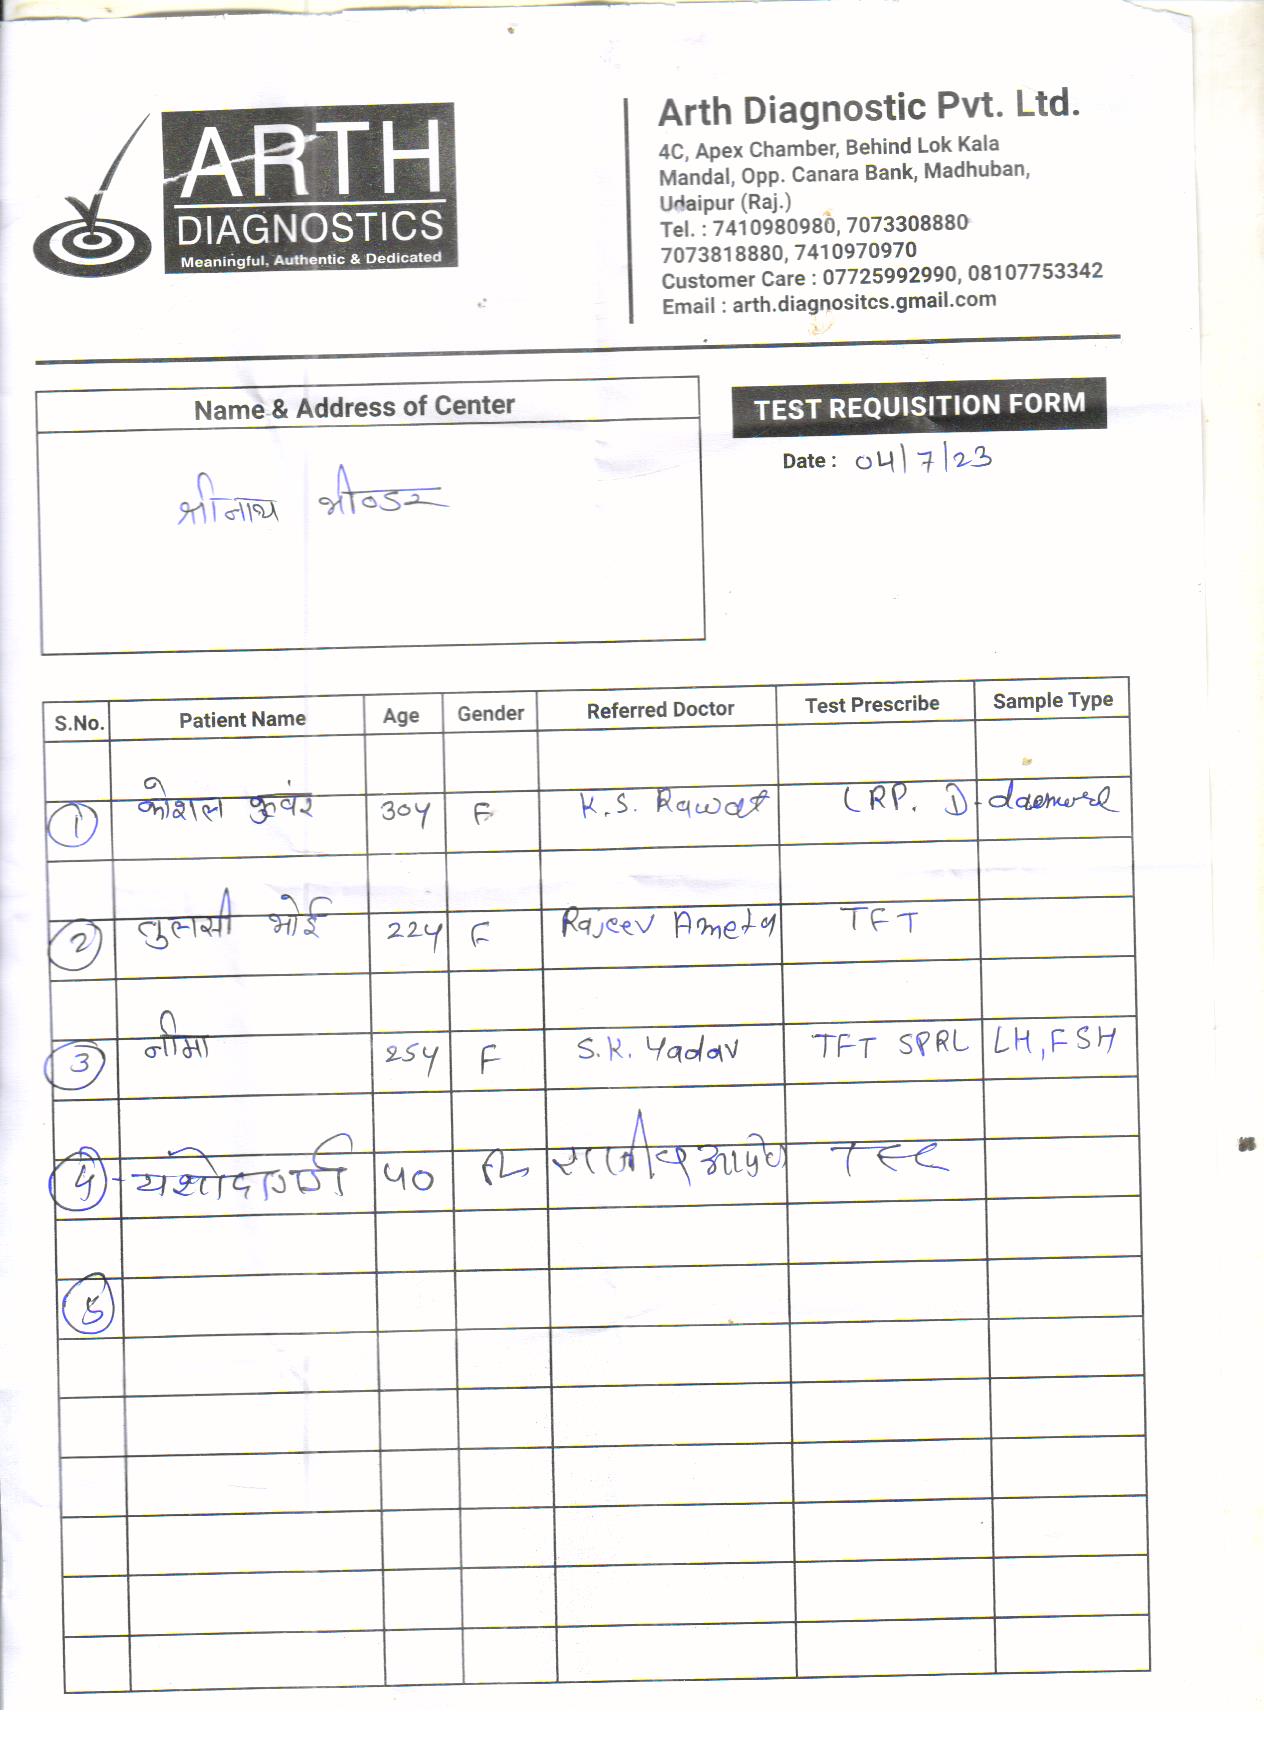 ARTH
DIAGNOSTICS
Meaningful, Authentic & Dedicated
Arth Diagnostic Pvt. Ltd.
4C, Apex Chamber, Behind Lok Kala
Mandal, Opp. Canara Bank, Madhuban,
Udaipur (Raj.)
Tel. : 7410980980, 7073308880
7073818880, 7410970970
Customer Care : 07725992990, 08107753342
Email : arth.diagnositcs.gmail.com
Name & Address of Center
श्रीनाथ भीण्डर
TEST REQUISITION FORM
Date : 04/7/23
S.No. Patient Name Age Gender Referred Doctor Test Prescribe Sample Type
1 कोशल कुवंर 30y F K.S. Rawat CRP. D-
2 तुलसी भोई 22y F Rajeev Ameta TFT
3 नीमा 25y F S.K. Yadav TFT SPRL LH, FSH
40
5